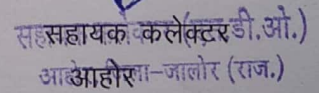 सहायक कलेक्टर डी.ओ.)
आहोर जिला-जालोर (राज.)